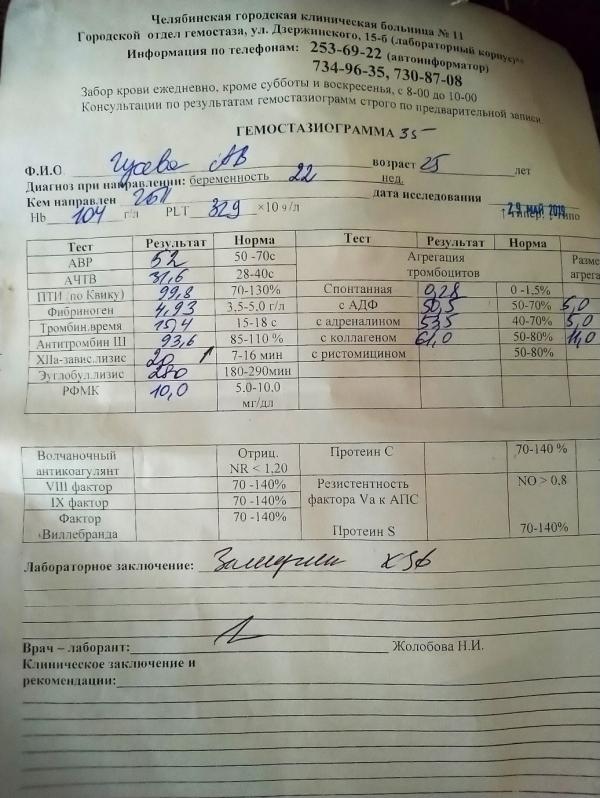 Челябинская городская клиническая больница № 11
Городской отдел гемостаза, ул. Дзержинского, 15-б (лабораторный корпус)
Информация по телефонам: 253-69-22 (автоинформатор)
734-96-35, 730-87-08
Забор крови ежедневно, кроме субботы и воскресенья, с 8-00 до 10-00
Консультации по результатам гемостазиограмм строго по предварительной записи.
ГЕМОСТАЗИОГРАММА 35
Ф.И.О. АВ возраст 25 лет
Диагноз при направлении: беременность 22 нед.
Кем направлен дата исследования 29 МАЙ 2019
Hb 104 г/л PLT 329 ×10 9/л
Тест Результат Норма Тест Результат Норма Разме
АВР 52 50 -70с Агрегация агрега
АЧТВ 31,6 28-40с тромбоцитов
ПТИ (по Квику) 99,8 70-130% Спонтанная 0,28 0 -1,5%
Фибриноген 4,93 3,5-5,0 г/л с АДФ 50,5 50-70% 5,0
Тромбин.время 15,4 15-18 с с адреналином 53,5 40-70% 5,0
Антитромбин III 93,6 85-110 % с коллагеном 61,0 50-80% 11,0
XIIа-завис.лизис 20 ↑ 7-16 мин с ристомицином 50-80%
Эуглобул.лизис 280 180-290мин
РФМК 10,0 5.0-10.0
мг/дл
Волчаночный Отриц. Протеин С 70-140 %
антикоагулянт NR < 1,20
VIII фактор 70 -140% Резистентность NO > 0,8
IX фактор 70 -140% фактора Va к АПС
Фактор 70 -140%
Виллебранда Протеин S 70-140%
Лабораторное заключение: ХЗф
Врач – лаборант: Жолобова Н.И.
Клиническое заключение и
рекомендации: